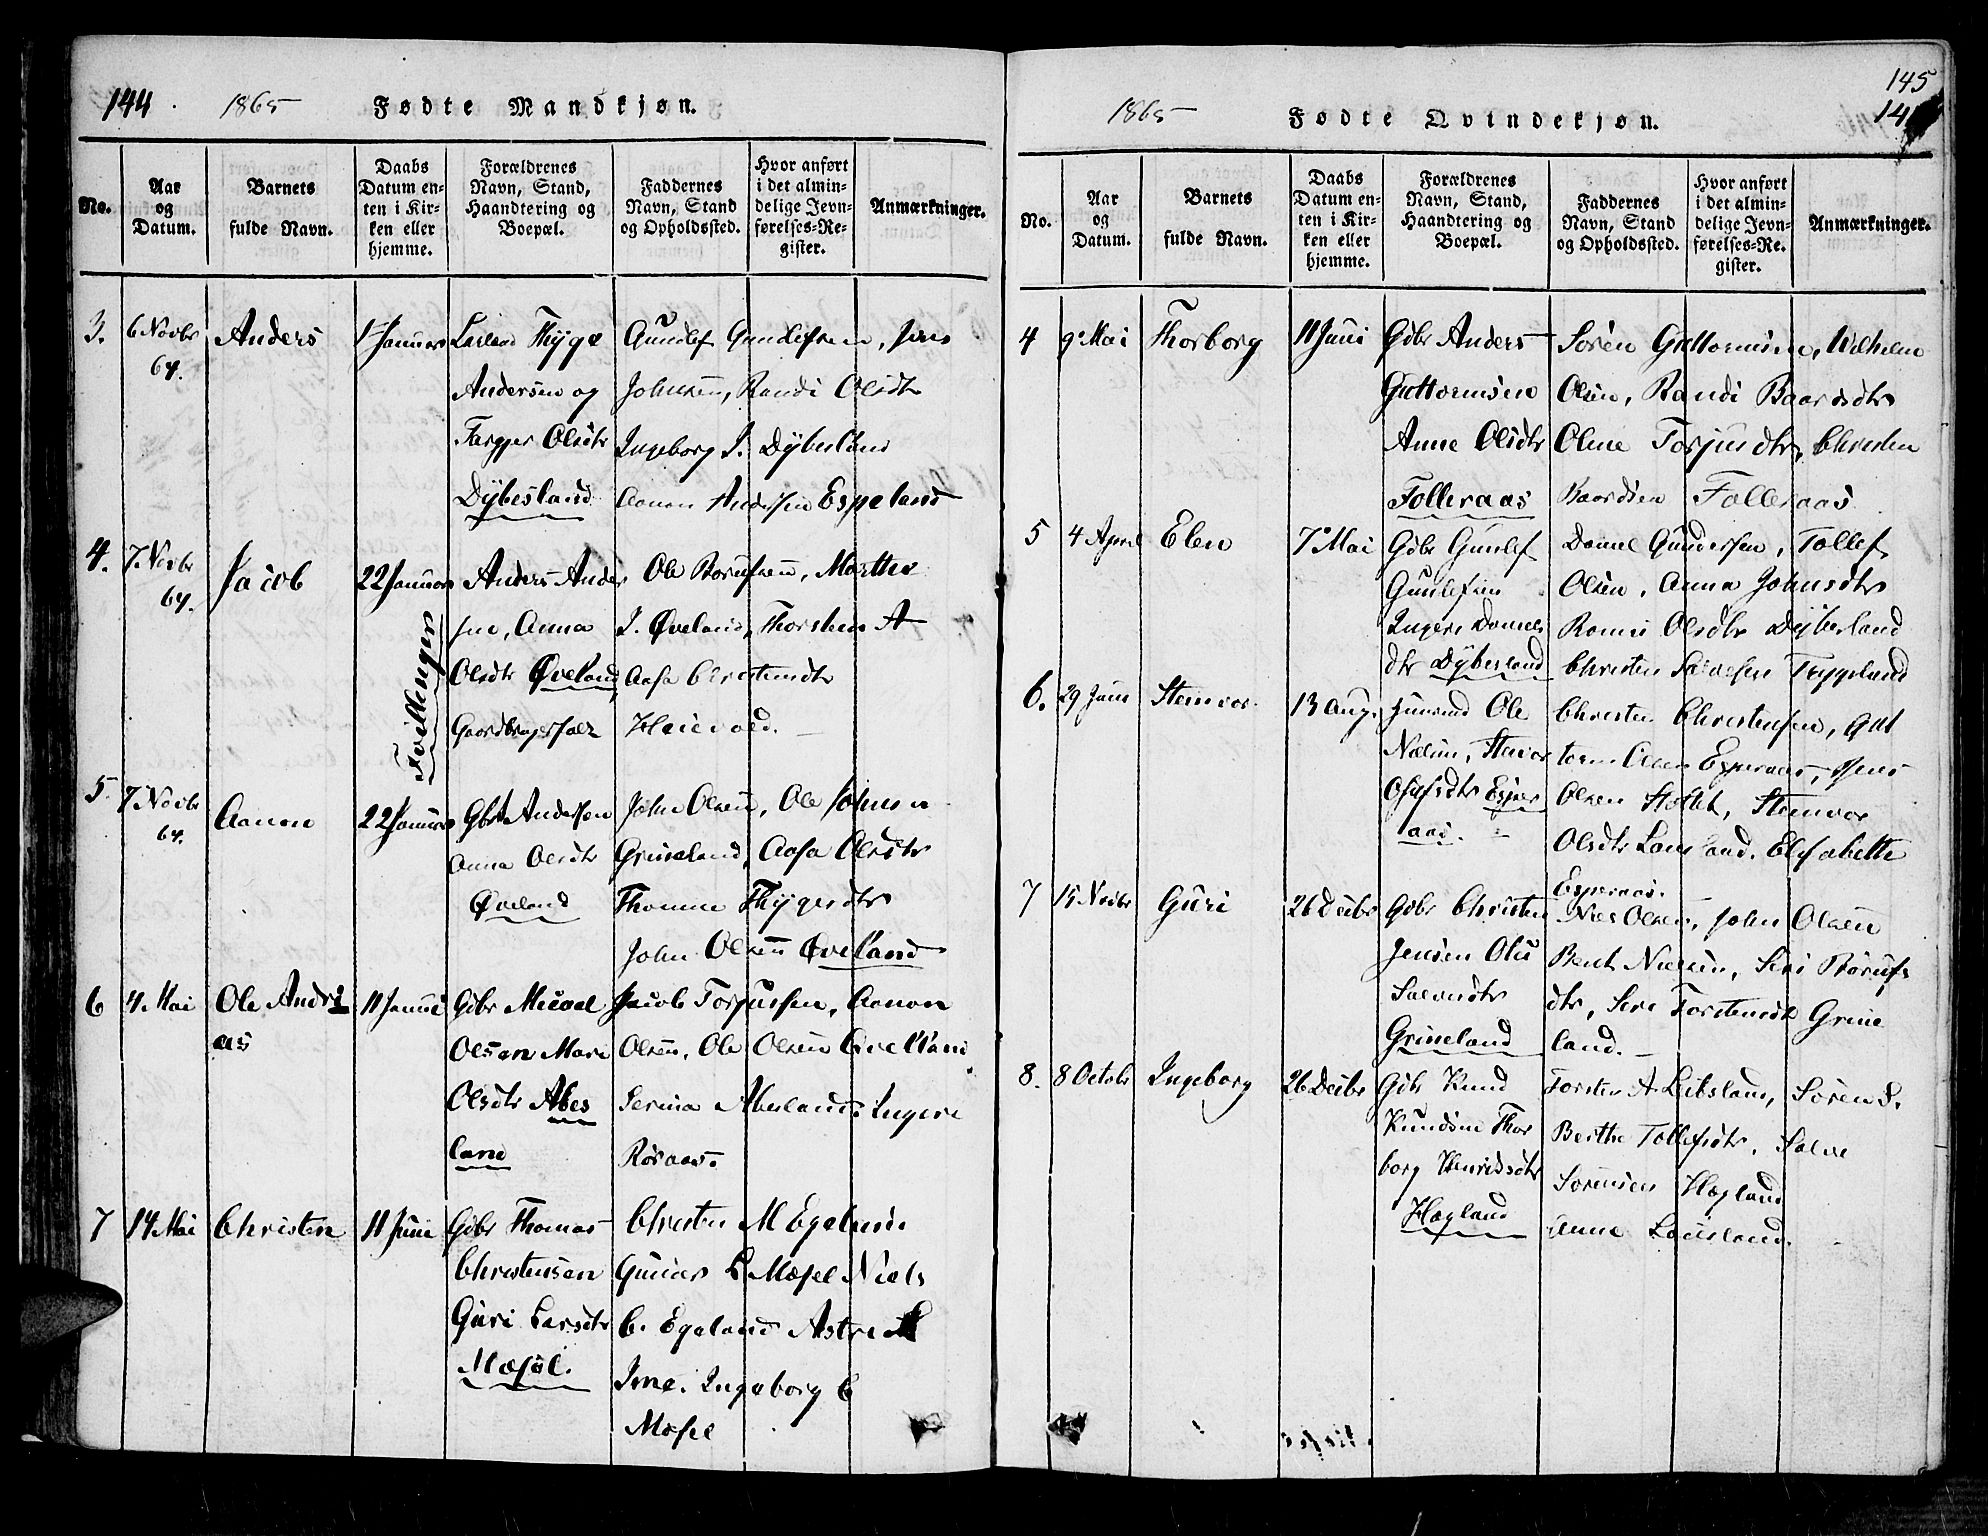 144. 1865 Fødte Mandkjøn.
No.
Aar
og
Datum.
Barnets
fulde Navn.
Daabs
Datum en-
ten i Kir-
ken eller
hjemme.
Forældrenes
Navn, Stand,
Haandtering og
Boepæl.
Faddernes
Navn, Stand
og Opholdssted.
Hvor anført
i det almin-
delige Jevn-
førelses-Re-
gister.
Anmærkninger.
3. 6 Novbr
64.
Anders
1 Januar
Thÿge
Andersen og
Targjer Olsdtr
Dÿbesland
Gunlef Gunlefsen, Jens
Johnsen, Randi Olsdtr
Ingeborg J. Dÿbesland
Aanon Andersen Espeland
4. 7 Novbr
64.
Jacob
22 Januar
Tvillinger
Anders Ander
sen, Anna
Olsdtr Øveland
Ole Rorufsen, Marthe
J. Øveland, Thorsten A
Aasa Christensdtr
Heievold.
5 7 Novbr
64.
Aanon
22 Januar
Gbr A Andersen
Anna Olsdtr
Øveland
John Olsen, Ole Johnsen
Grineland, Aasa Olsdtr
Thomine Thÿgesdtr
John Olsen Øveland
6 4 Mai
Ole Andre
as
11 Junii
Gdbr Micael
Olsen Mari
Olsdtr Abes
land
Jacob Torjussen, Aanon
Olsen, Ole Olsen Qvelland
Serina Abesland, Ingere
Røraas.
7 14 Mai
Christen
11 Junii
Gdbr Thomas
Christensen
Guri Larsdtr
Møsel.
Christen M Egeland
Gunder L Møsel Niels
C. Egeland Astri L
Ime. Ingeborg C
Møsel
145
1865 Fødte Qvindekjøn.
No.
Aar
og
Datum.
Barnets
fulde Navn.
Daabs
Datum en-
ten i Kir-
ken eller
hjemme.
Forældrenes
Navn, Stand,
Haandtering og
Boepæl.
Faddernes
Navn, Stand
og Opholdssted.
Hvor anført
i det almin-
delige Jevn-
førelses-Re-
gister.
Anmærkninger.
4 9 Mai
Thorborg
11 Juni
Gdbr Anders
Guttormsen
Anne Olsdtr
Folleraas
Søren Guttormsen, Wilhelm
Olsen, Randi Baardsdtr
Oline Torjusdtr, Christen
Baardsen Folleraas
5 4 April
Elen
7 Mai
Gdbr Gunlef
Gunlefsen
Ingeri Daniels
dtr Dÿbesland
Daniel Gundersen, Tollef
Olsen, Anna Johnsdtr
Randi Olsdtr Dÿbesland
Christen Salvesen Tryggeland
6. 29 Juni
Stenvor
13 Aug.
Ole
Nielsen, Stenvor
Olufsdtr Esper
aas.
Christen Christensen, Gut
torm Olsen Esperaas, Jens
Olsen Stollet, Stenvor
Olsdtr Lausland. Elisabethe
Esperaas.
7 15 Novbr
Guri
26 Decbr
Gdbr Christen
Jensen Olu
Salvesdtr
Grineland
Niels Olsen, John Olsen
Berth Nielsen, Siri Rorufs
dtr, Siri Torstensdtr Grine
land.
8. 8 Octobr
Ingeborg
26 Decbr
Gdbr Knud
Knudsen Thor
borg Henriksdtr
Høgland
Torsten A Leibsland, Søren S.
Berthe Tollefsdtr, Salve
Sørensen Høgland
Anne Lausland.